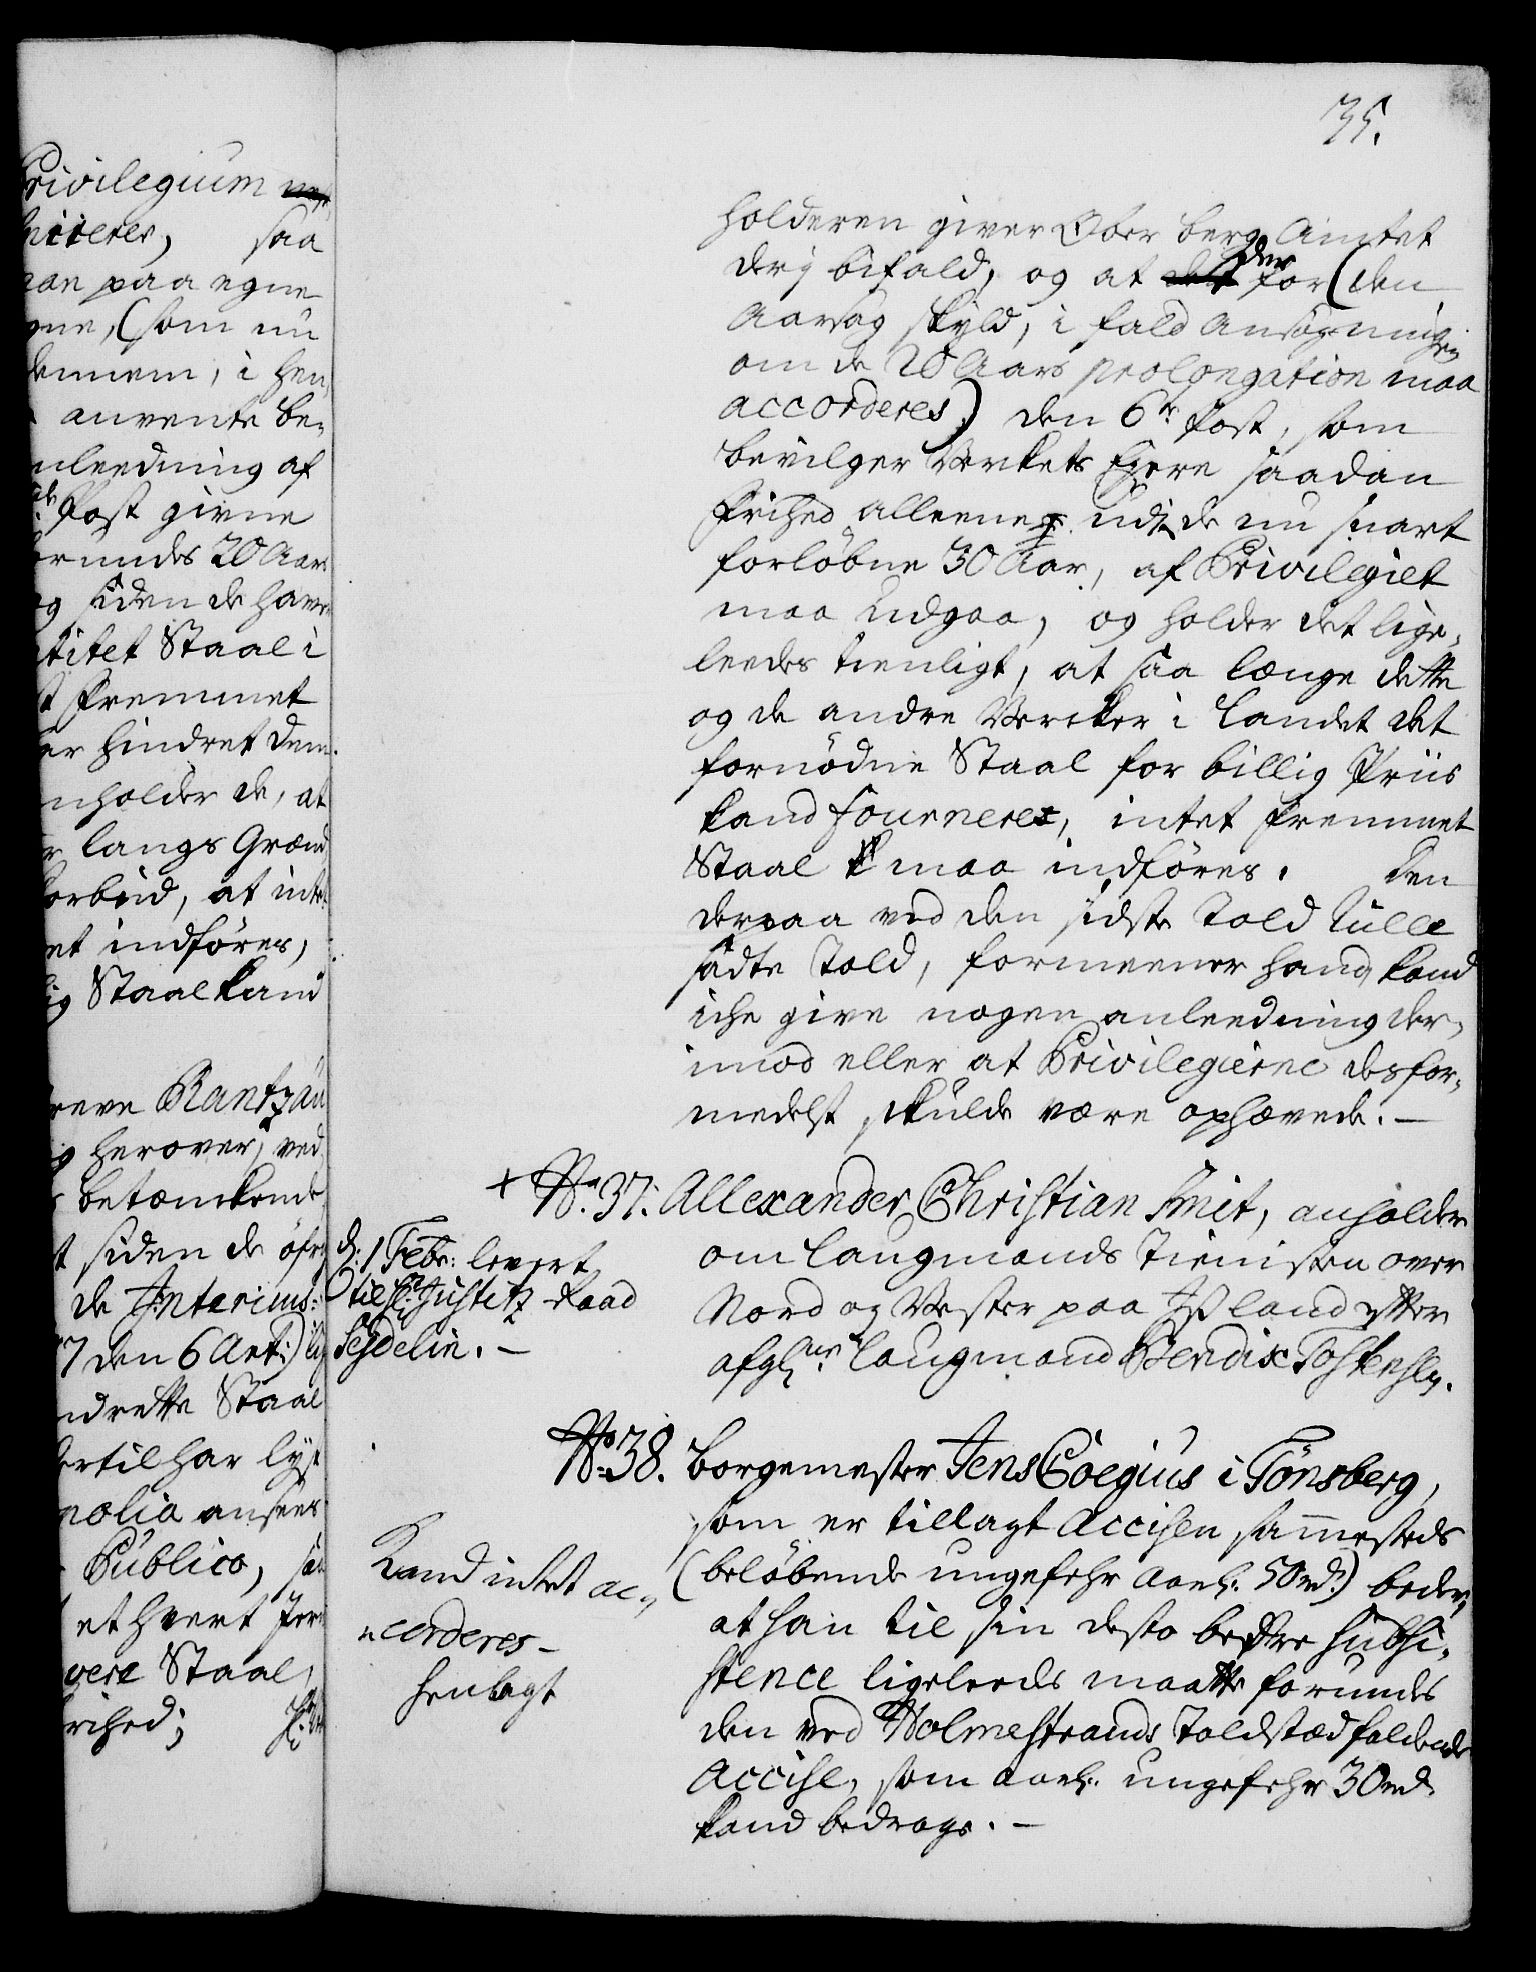 35.
rivilegium
niieres, saa
paa egne
gne, (som nu
dennem, i hen¬
anvente be¬
nleedning af
Post givne
runder 20 Aar
og siden de have
titet Staal i
fremmet
er hindret dem.
nholder de, at
langs Grænd
forbud, at intet
et indføres,
lig Staal kand
reve Rantzau
herover, ved
betænkende
siden de
de Interims:
7 den 6 Art:)
ndrette Staal
ertil har lyst
nolia ansees
Publico,
et hvert
vere Staal,
rihed;
holderen giver Ober berg Amtet
derj bifald, og at det der for (den
Aarsag skyld, i fald Ansøgningen
om de 20 Aars prolongation maa
accorderes) den 6te Post, som
bevilger Verkets Eyere saadan
frihed alleene udj de nu snart
forløbne 30 Aar, af Privilegiet
maa Udgaa, og holder det lige¬
leedes tienligt, at saa længe dette
og de andre Vercker i Landet det
fornødne Staal for billig Priis
kand fourneret, intet fremmet
Staal maa indføres. Den
derpaa ved den sidste Told Rulle
sadte Told, formeener hand, kand
iche give nogen anleedning der¬
imod eller at Privilegierne desfor¬
medelst skulde være ophævede. —
+ No. 37. Allexander Christian Smit, anholder
om Laugmands Tienisten over
Nord og Vester paa Jsland efter
afgl.ne Laugmand Bendix Tostensen.
d: 1 Febr: levert
til Hr. Justitz-Raad
Seydelin. —
No. 38. Borgemester Jens Coegius i Tønsberg,
som er tillagt Accisen sammesteds
(beløbende ungefehr Aarl. 50 rd.) beder,
at han til sin desto bedre Subsi¬
stence ligeleeds maatte forundes
den ved Holmestrands Toldstæd faldende
Accise, som aarl. ungefehr 30 rd.
kand bedrage. —
Kand intet ac¬
corderes —
henlagt